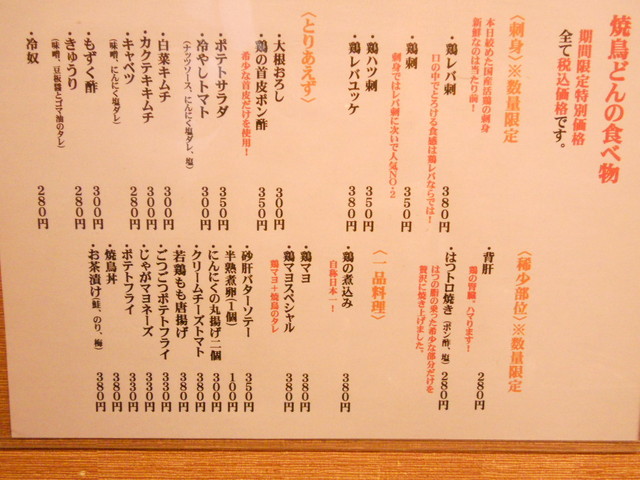 焼鳥どんの食べ物
期間限定特別価格
全て税込価格です。
〈刺身〉※数量限定
本日絞めた国産活鶏の刺身
新鮮なのは当たり前！
・鶏レバ刺 380円
口の中でとろける食感は鶏レバならでは！
・鶏ハツ刺 350円
刺身ではレバ刺に次いで人気NO・2
・鶏刺 350円
・鶏レバユッケ 380円
〈とりあえず〉
・大根おろし 300円
・鶏の首皮ポン酢 350円
希少な首皮だけを使用！
・ポテトサラダ 350円
・冷やしトマト 300円
（ナッツソース、にんにく塩ダレ、塩）
・白菜キムチ 300円
・カクテキキムチ 300円
・キャベツ 280円
（味噌、にんにく塩ダレ）
・もずく酢 300円
・きゅうり 280円
（味噌、豆板醤とゴマ油のタレ）
・冷奴 280円
〈稀少部位〉※数量限定
・背肝 280円
鶏の腎臓。ハマります！
・はつトロ焼き（ポン酢、塩） 280円
はつの脂の乗った希少な部分だけを
贅沢に焼き上げました。
〈一品料理〉
・鶏の煮込み 380円
自称日本一！
・鶏マヨ 380円
・鶏マヨスペシャル 380円
鶏マヨ＋焼鳥のタレ
・砂肝バターソテー 350円
・半熟煮卵（1個） 100円
・にんにくの丸揚げ二個 300円
・クリームチーズトマト 380円
・若鶏もも唐揚げ 380円
・ごつごつポテトフライ 330円
・じゃがマヨネーズ 330円
・ポテトフライ 330円
・焼鳥丼 380円
・お茶漬け（鮭、のり、梅） 380円